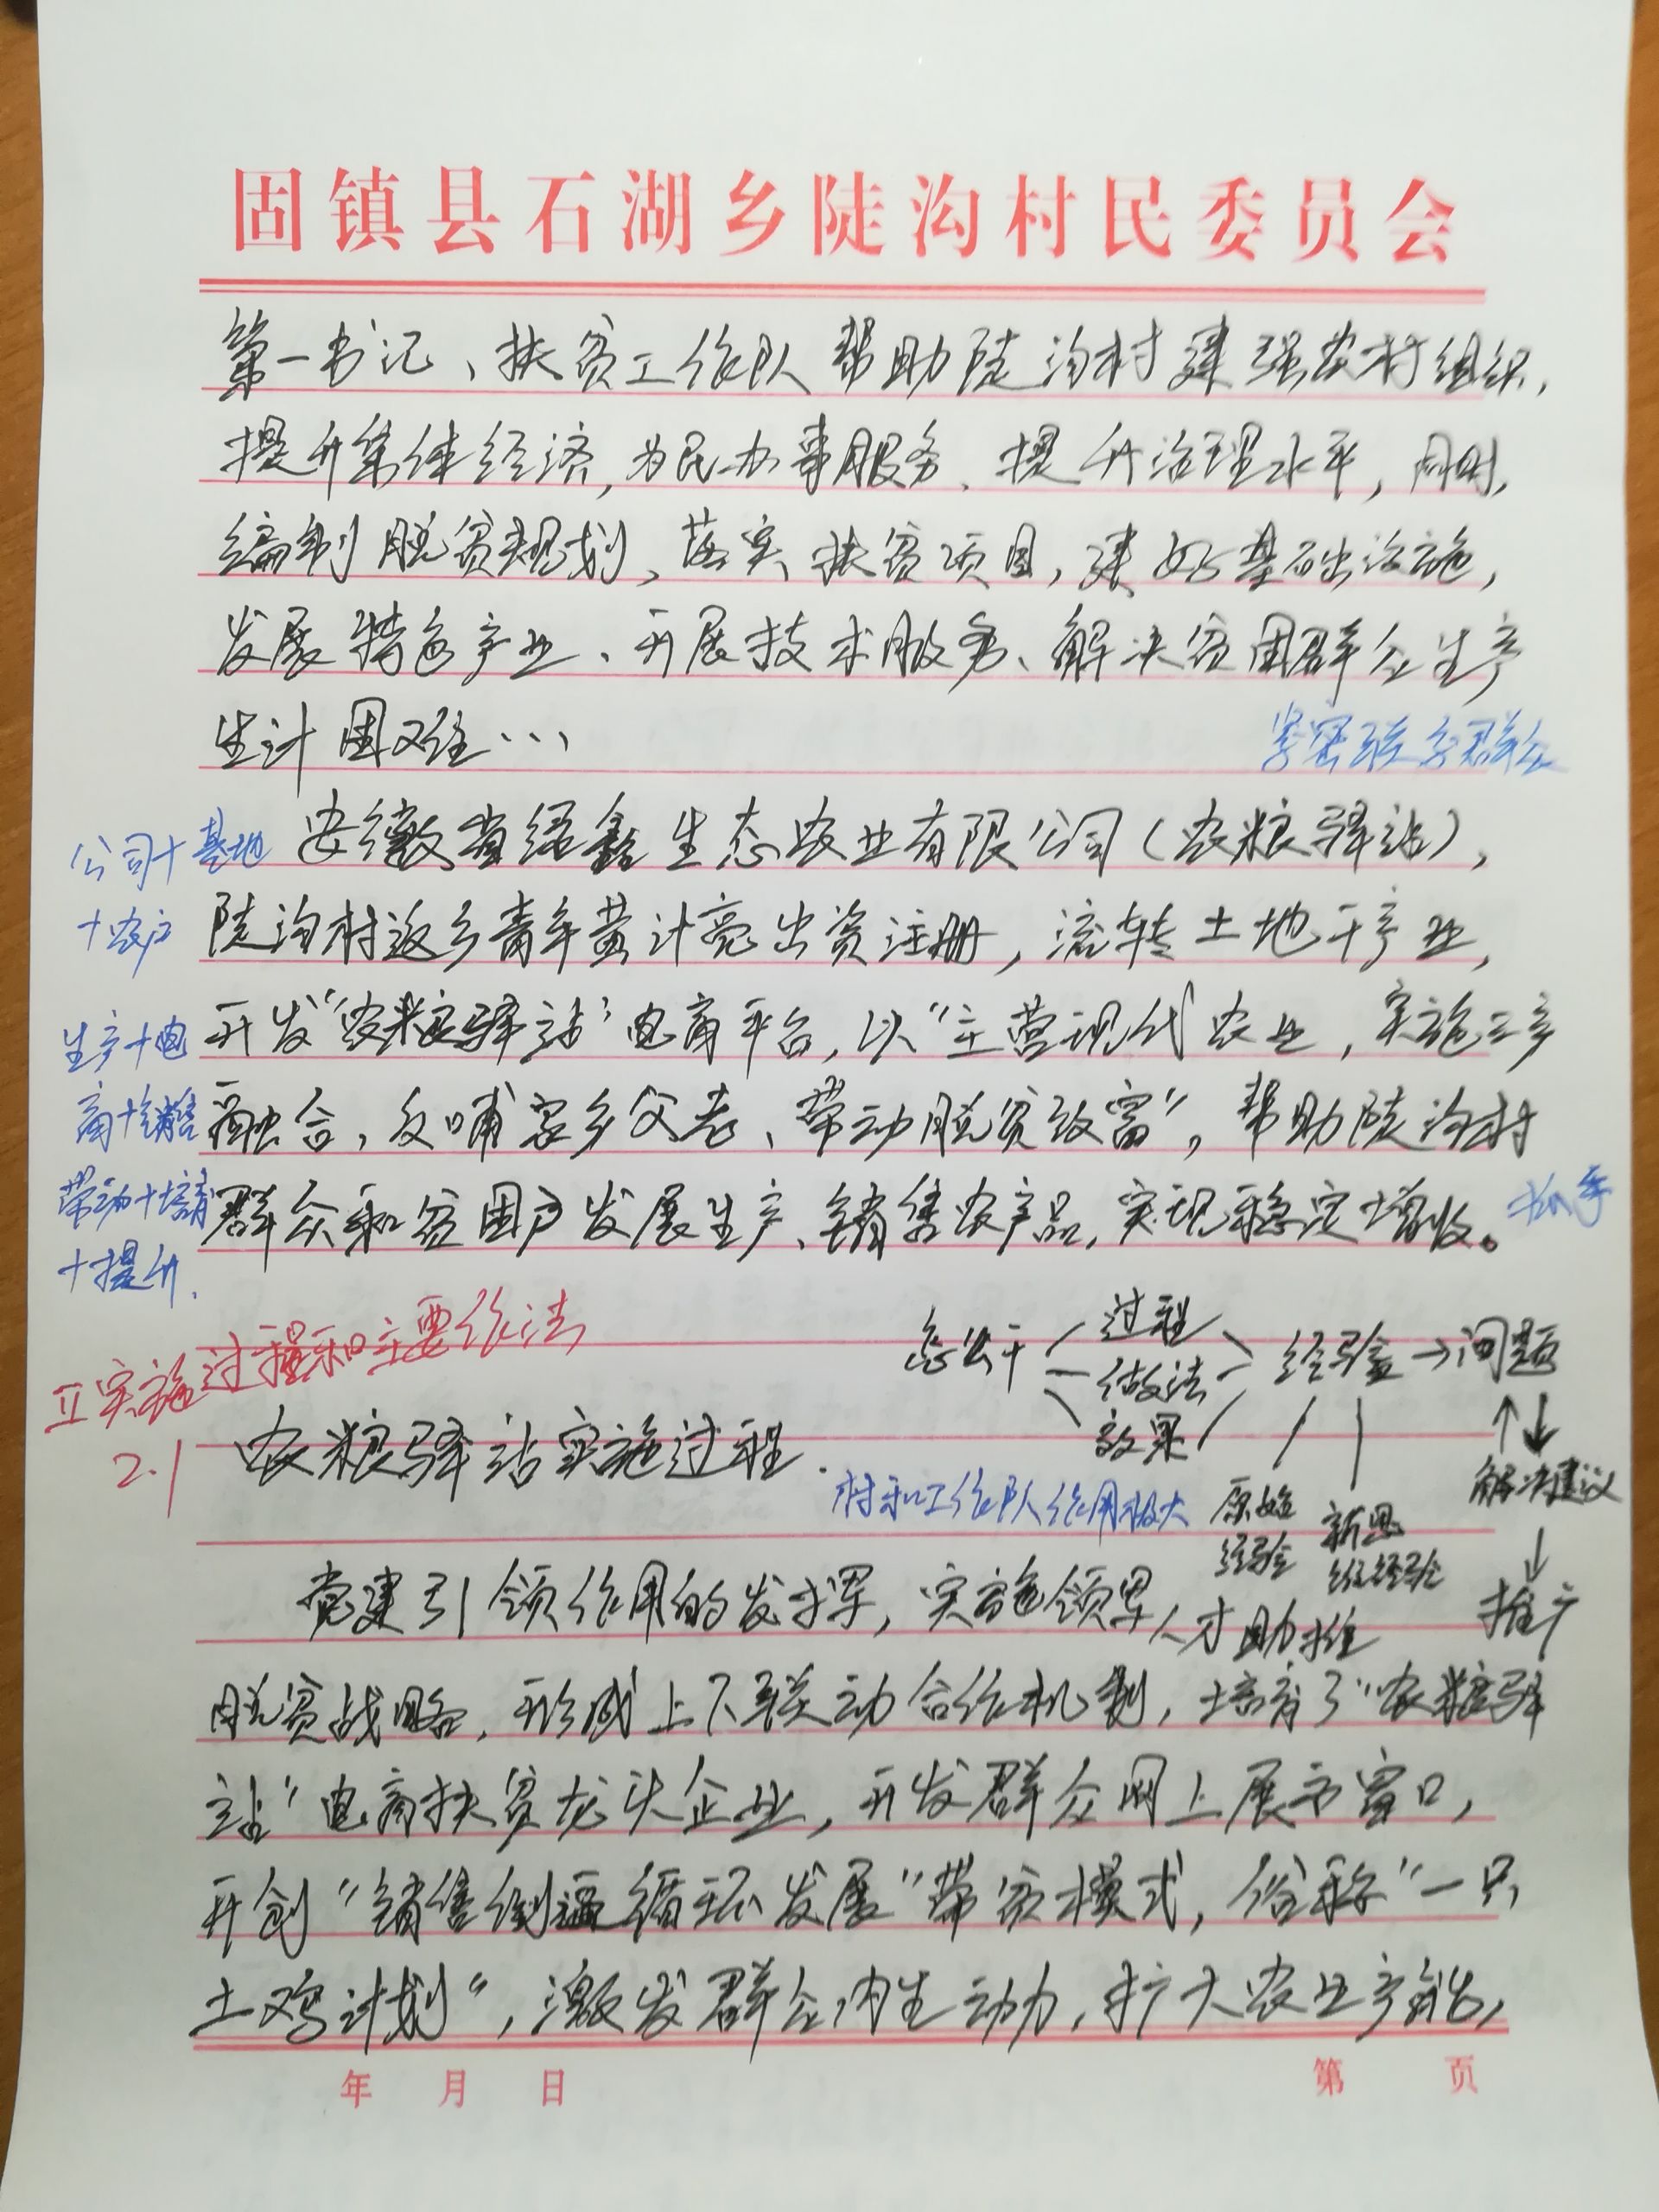 固镇县石湖乡陡沟村民委员会
第一书记、扶贫工作队帮助陡沟村建强农村组织,
提升集体经济,为民办事服务、提升治理水平,同时,
编制脱贫规划、落实扶贫项目,建好基础设施,
发展特色产业、开展技术服务、解决贫困群众生产
生计困难…
班子群众
公司+基地
+农户
安徽省绿鑫生态农业有限公司(农粮驿站),
陡沟村返乡青年黄计亮出资注册,流转土地干产业,
生产+电
商+销售
开发“农粮驿站”电商平台,以“主营现代农业,实施三产
融合,反哺家乡父老、带动脱贫致富”,帮助陡沟村
带动+培育
+提升.
群众和贫困户发展生产、销售农产品,实现稳定增收。
抓手
II实施过程和主要做法
怎么干
过程
做法
效果
经验→问题
解决建议
推广
2.1 农粮驿站实施过程.
村和工作队作用极大
原始
经验
新思
维经验
党建引领作用的发挥,实施领军人才助推
脱贫战略,形成上下联动合作机制,培育了“农粮驿
站”电商扶贫龙头企业,开发群众网上展示窗口,
开创“销售倒逼循环发展”带贫模式,俗称“一只
土鸡计划”,激发群众内生动力,扩大农业产能,
年 月 日
第 页